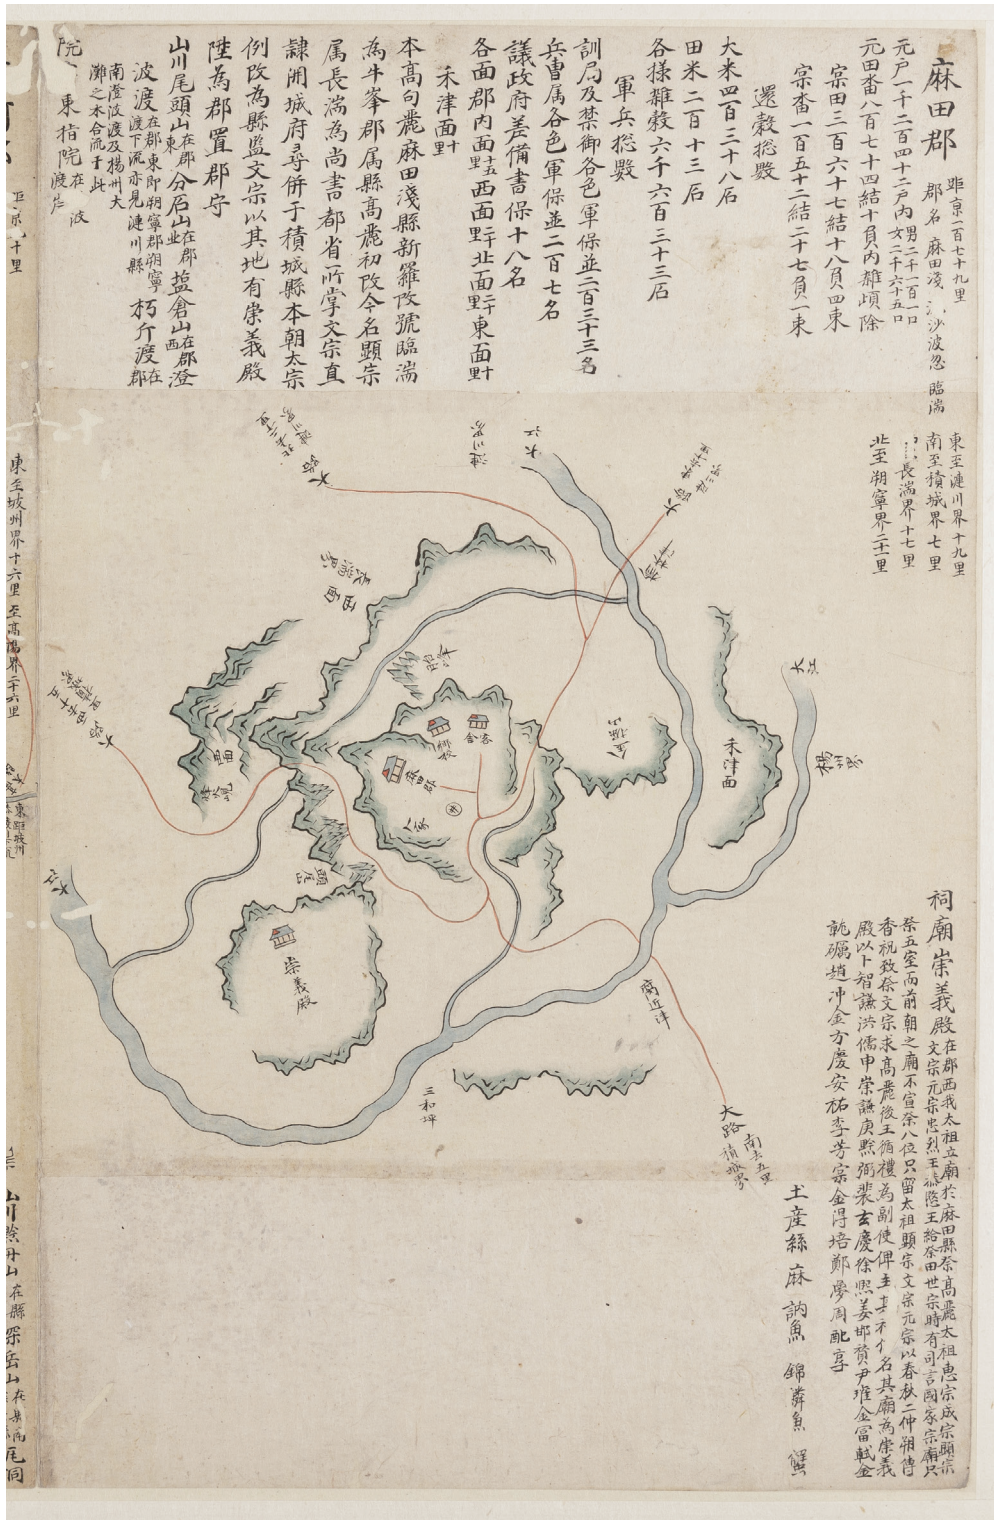 麻田郡
距京一百七十九里
郡名 麻田淺 沙波忽 臨湍
元戶一千二百四十二戶內男二千一百一口女二千六十五口
元田畓八百七十四結十負內雜頉除
宲田三百六十七結十八負四束
宲畓一百五十二結二十七負一束
還穀摠數
大米四百三十八石
田米二百十三石
各樣雜穀六千六百三十三石
軍兵摠數
訓局及禁御各色軍保並二百三十三名
兵曺属各色軍保並二百七名
議政府差備書保十八名
各面郡内面十五里西面二十里北面二十里東面十里
禾津面十里
本高句麗麻田淺縣新羅改號臨湍
為牛峯郡属縣高麗初改今名顯宗
属長湍為尚書都省所掌文宗直
隷開城府尋併于積城縣本朝太宗
例改為縣監文宗以其地有崇義殿
陞為郡置郡守
山川尾頭山在郡東分石山在郡北塩倉山在郡西澄
波渡在郡東即朔寧郡朔寧渡下流亦見漣川縣朽斤渡在郡
南澄波渡及楊州大灘之水合流于此
院 東指院在 波渡岸
東至漣川界十九里
南至積城界七里
長湍界十七里
北至朔寧界二十一里
祠廟崇義殿在郡西我太祖立廟於麻田縣祭高麗太祖惠宗成宗顯宗
文宗元宗忠烈王恭愍王給祭田世宗時有司言國家宗廟只
祭五室而前朝之廟不宣祭八位只留太祖顯宗文宗元宗以春秋二仲朔傳
香祝致祭文宗求高麗後王循禮為副使俾主其祀名其廟為崇義
殿以卜智謙洪儒申崇謙庾黔弼裴玄慶徐熙姜邯贊尹瓘金冨軾金
就礪趙冲金方慶安祐李芳宲金得培鄭夢周配享
土産絲 麻 訥魚 錦鱗魚 蟹
大江
漣川界
大路
大路
長湍界
西面
大江
楊州界
禾津面
客舍
鄕校
麻田郡
人家
西面
大路
大江
崇義殿
三和坪
大路
南去五里
積城界
東至坡州界十六里 至高陽界二十六里